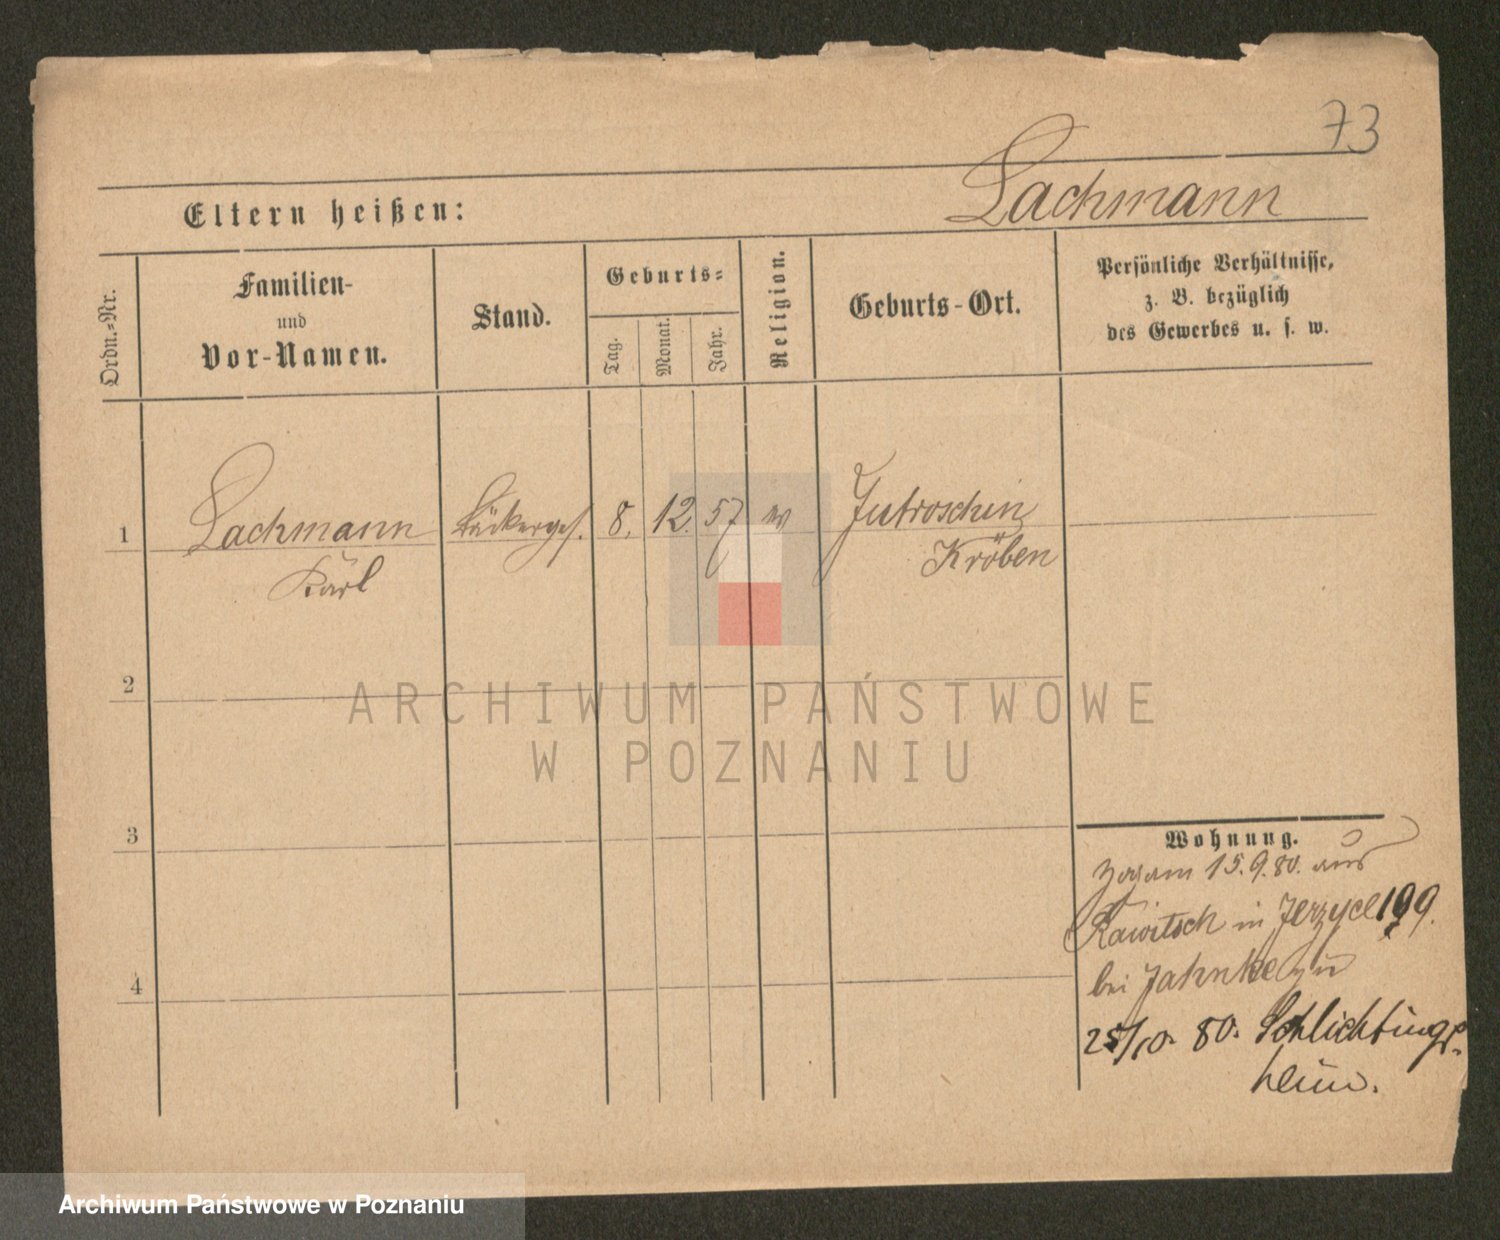 73
Lachmann
Eltern heißen:
Ordn.-Nr.
Familien-
und
Vor-Namen.
Stand.
Geburts-
Tag.
Monat.
Jahr.
Religion.
Geburts-Ort.
Persönliche Verhältnisse,
z. B. bezüglich
des Gewerbes u. s. w.
1
Lachmann
Karl
Bäckerges.
8.
12.
57
Jutroschin
Kröben
2
3
4
ARCHIWUM PAŃSTWOWE
W POZNANIU
Wohnung.
Zog am 15.9.80. aus
Rawitsch in Jerzyce 199.
bei Jahnke zu
25/10. 80. Schlichtings-
heim.
Archiwum Państwowe w Poznaniu